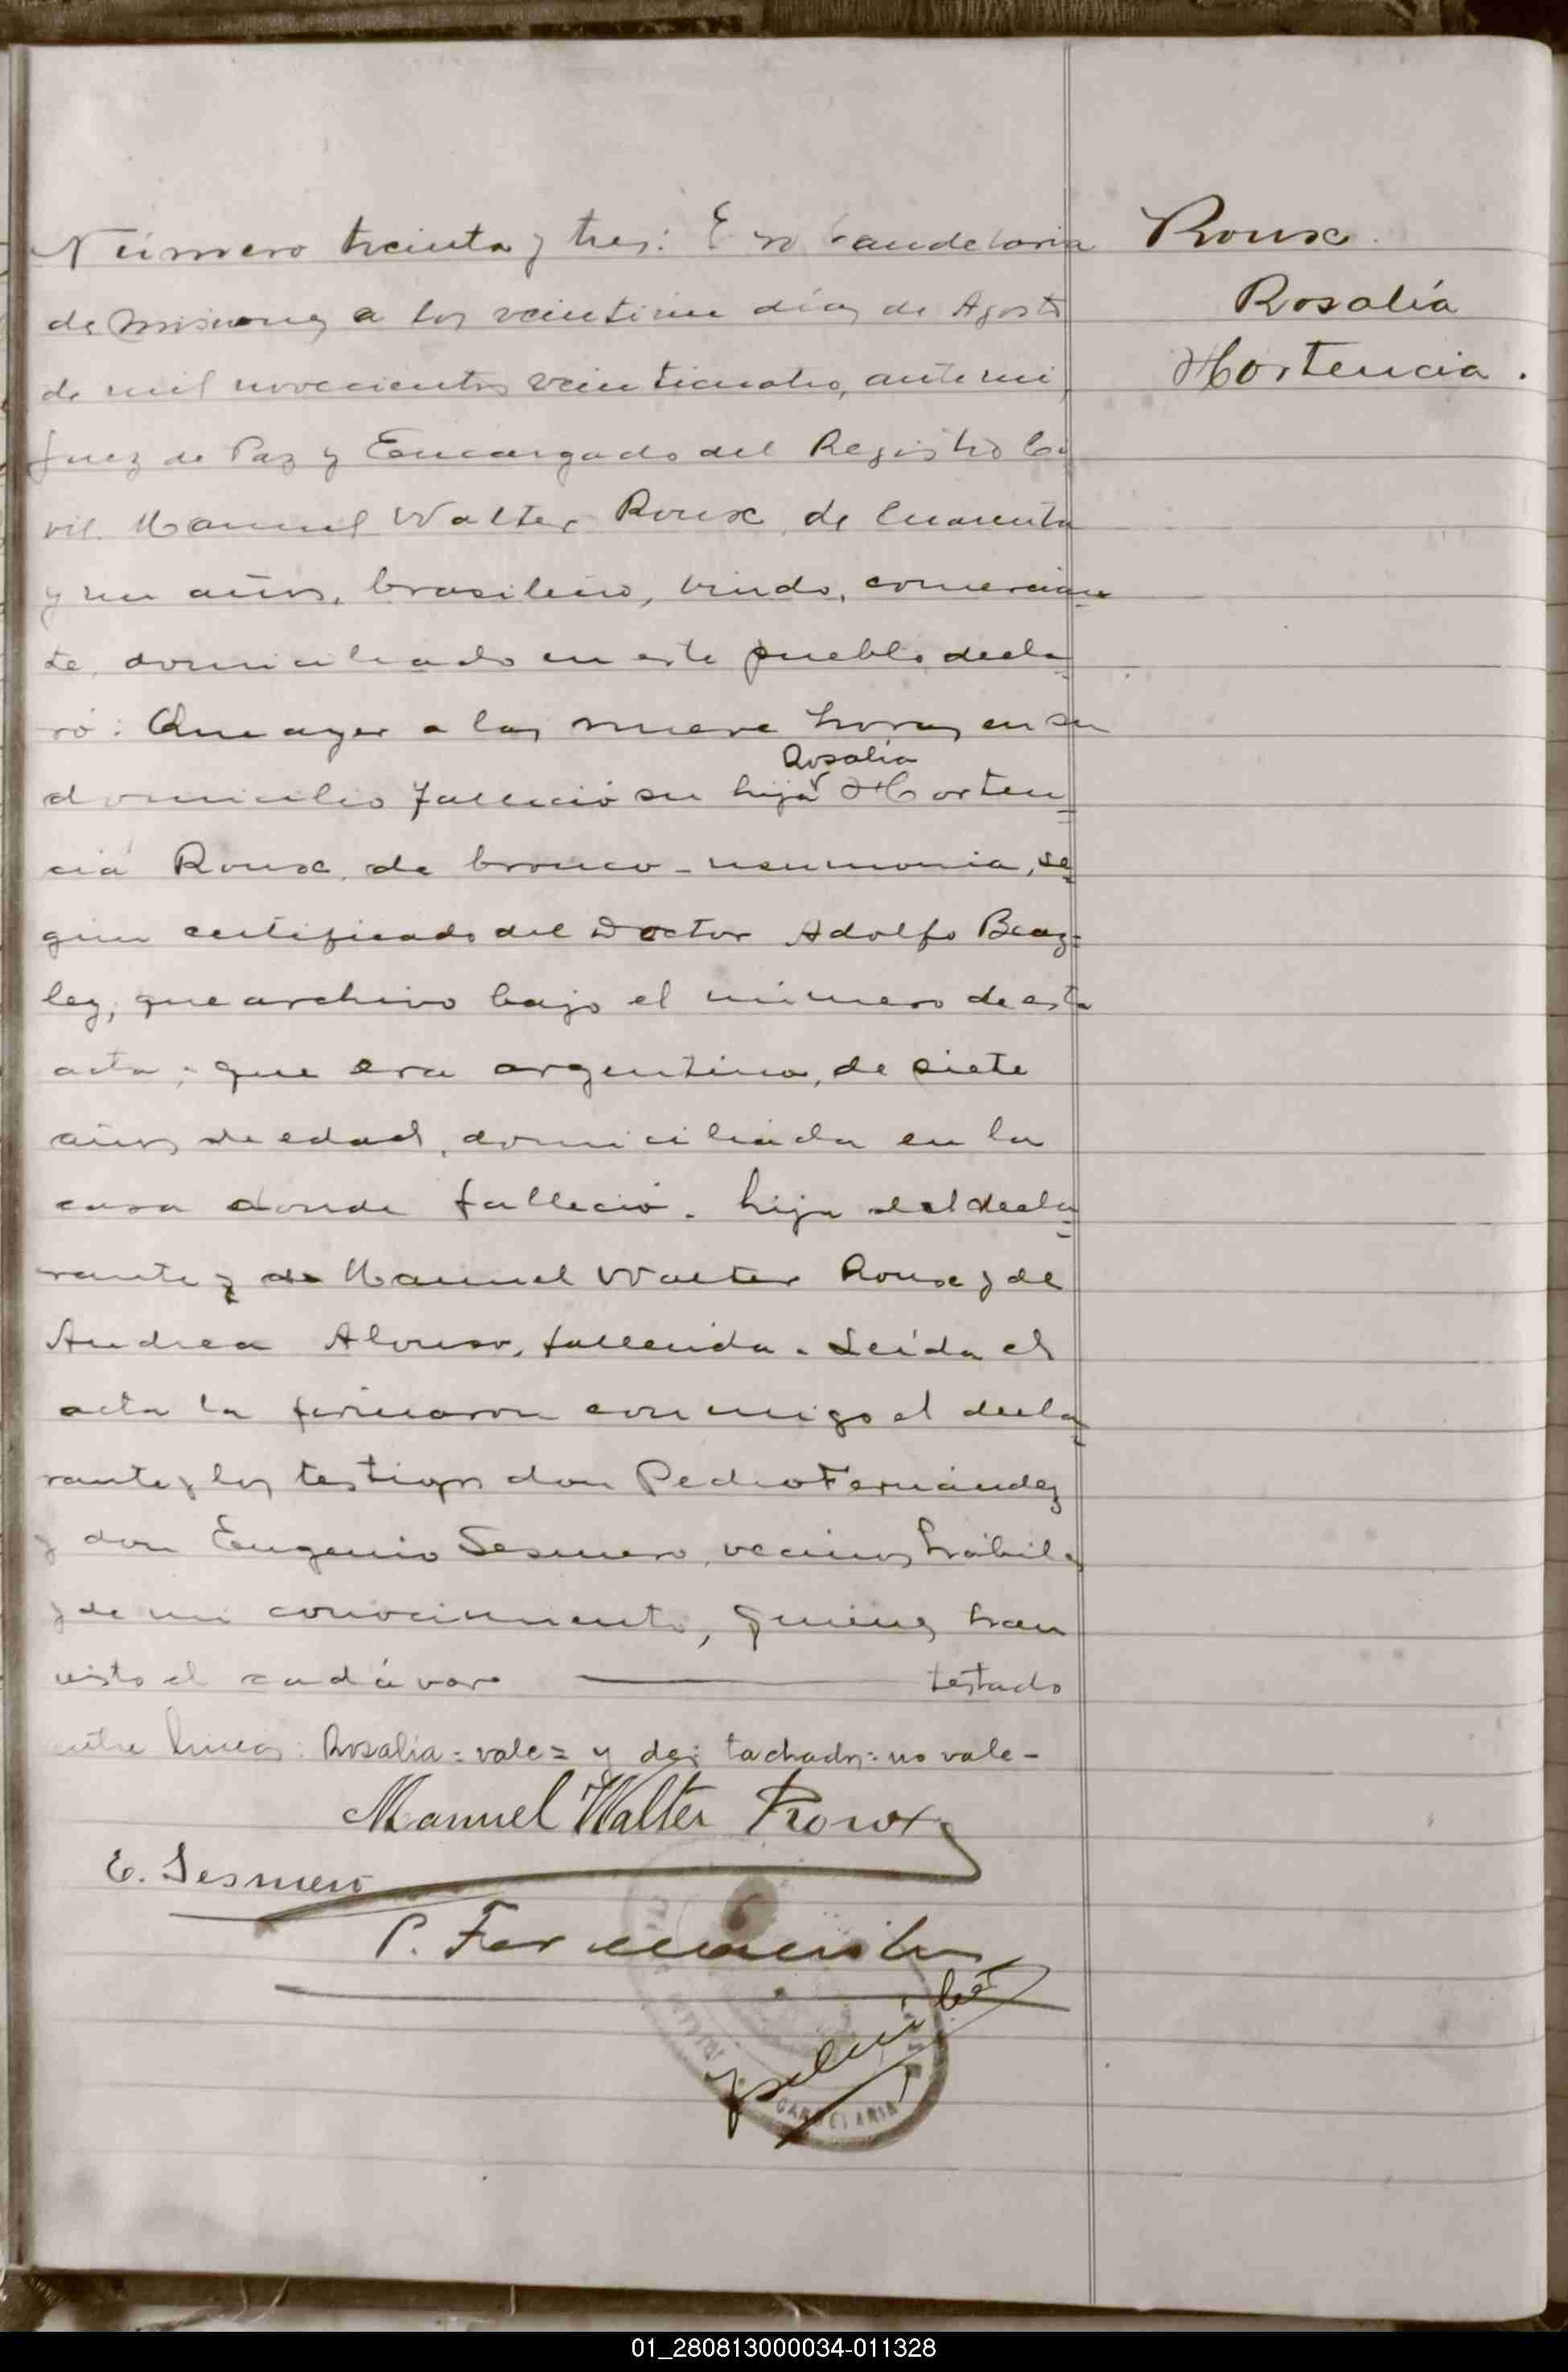 Número treinta y tres: En Candelaria
de Misiones a los veintiun días de Agosto
de mil novecientos veinticuatro, ante mi,
Juez de Paz y Encargado del Registro Ci
vil. Manuel Walter Roux, de cuarenta
y un años, brasilero, viudo, comercian
te, domiciliado en este pueblo, decla
ró: Que ayer a las nueve horas en su
Rosalía
domicilio falleció su hija Horten
cia Roux, de bronco-neumonia, se
gún certificado del Doctor Adolfo Beaz=
ley, que archivo bajo el número de esta
acta; que era argentina, de siete
años de edad, domiciliada en la
casa donde falleció. hija del decla
rante y de Manuel Walter Roux y de
Andrea Alonso, fallecida. Leída el
acta la firmaron conmigo el decla
rante y los testigos don Pedro Fernández
y don Eugenio Sesmero, vecinos hábiles
y de mi conocimiento, quienes han
visto el cadáver ——— testado
entre lineas: Rosalía = vale = y de: tachados: no vale -
Manuel Walter Roux
E. Sesmero
P. Fernández
CANDELARIA
Roux.
Rosalía
Hortencia.
01_280813000034-011328